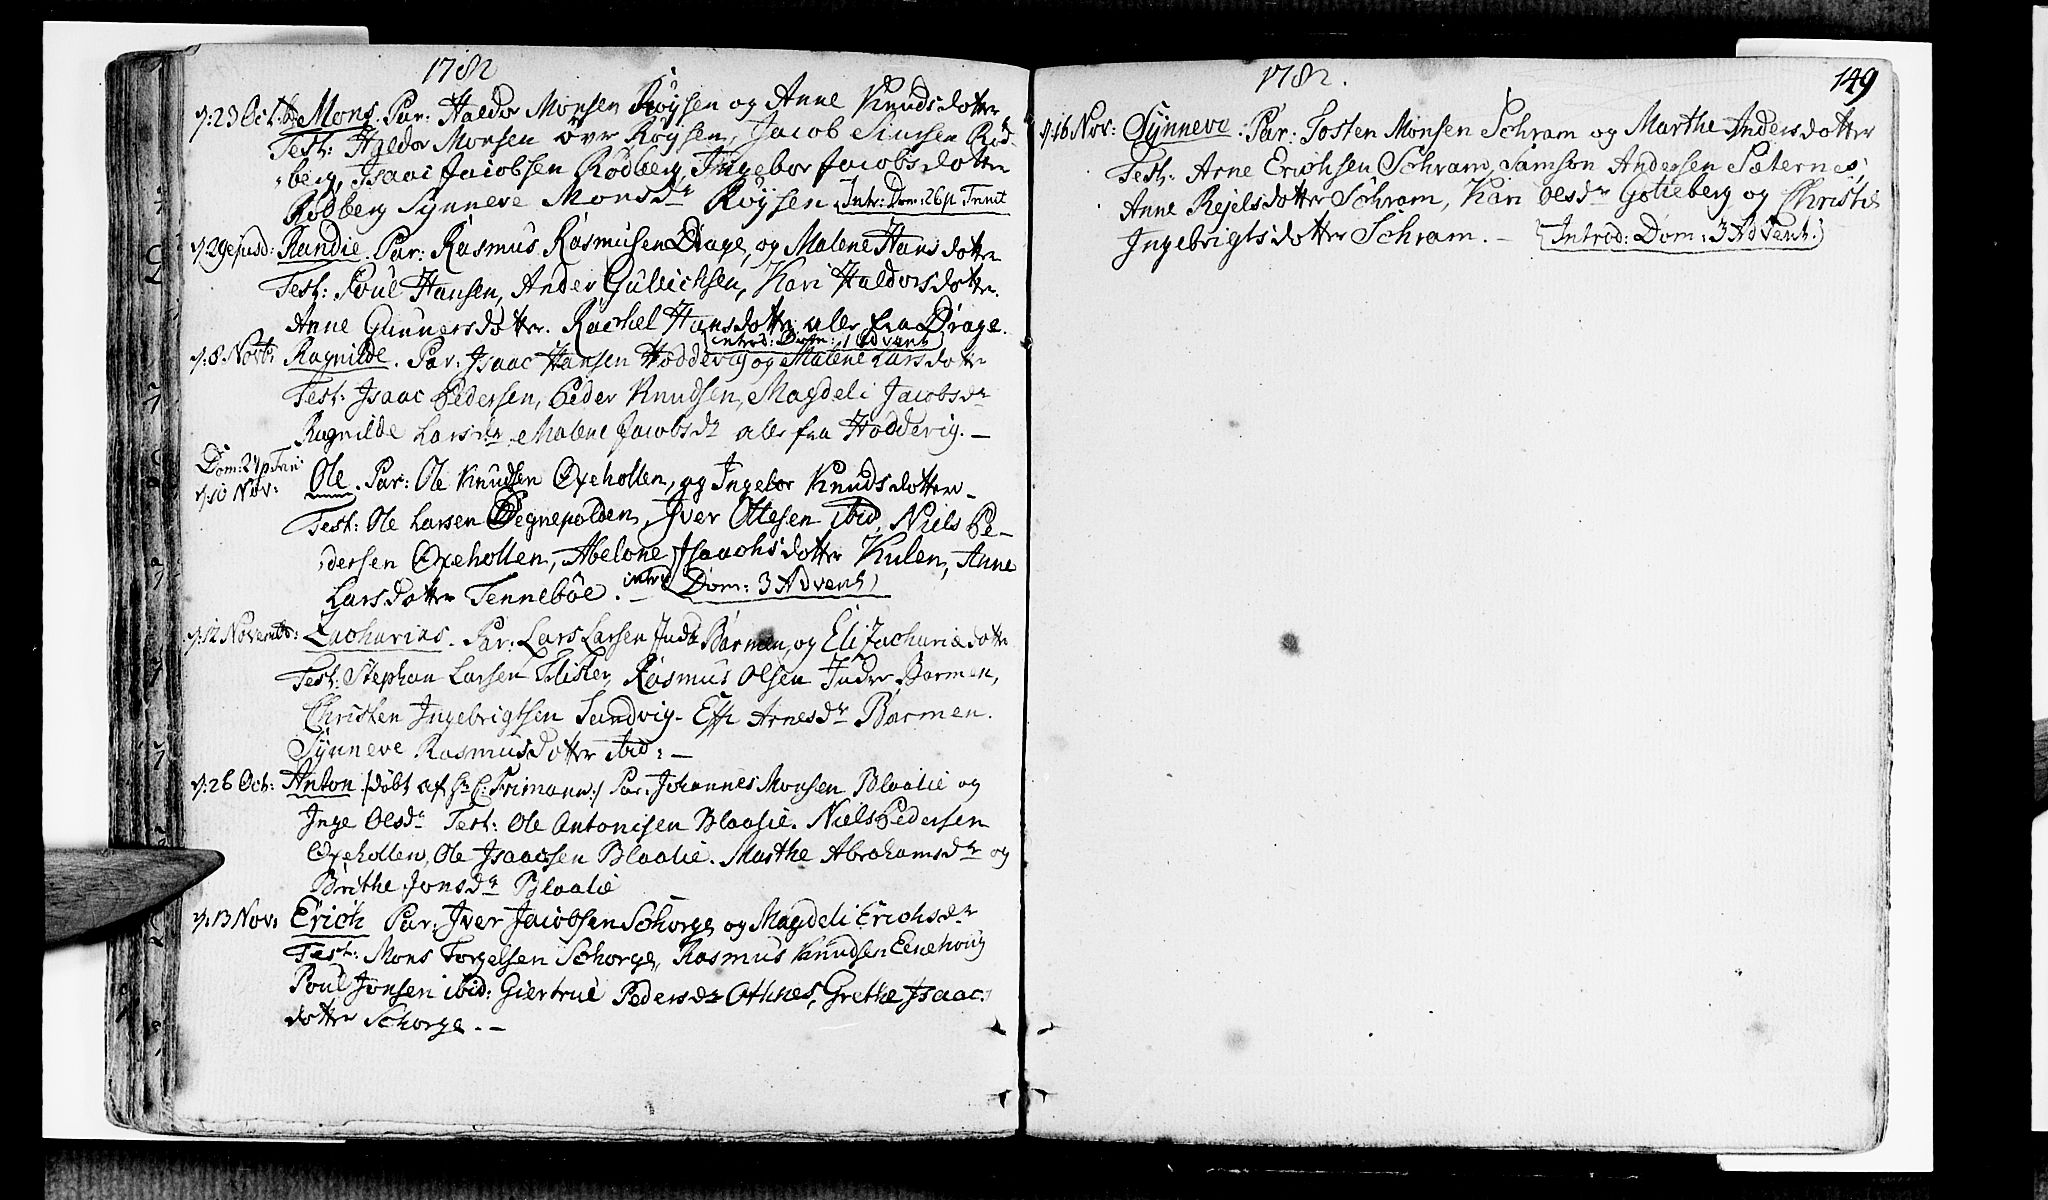 1782
d: 23 Octb: Mons. Par: Haldor Monsen Röysen og Anne Knudsdotter
Test: Haldor Monsen övr Röysen, Jacob Simsen Röd-
berg, Isaac Jacobsen Rödberg, Ingebor Jacobsdotter
Rödberg Synneve Monsdr Röysen. Intr: Dom: 26 p Trinit
d: 29 ejusd: Randie. Par: Rasmus Rasmusen Drage, og Malene Hansdotter
Test: Poul Hansen, Ander Gullichsen, Kari Haldorsdotter.
Anne Gunnersdotter. Rachel Hansdotter alle fra Drage.
(introd: Dom: 1 Advent)
d: 8 Novb: Ragnilde. Par: Isaac Hansen Hoddevig og Malene Larsdotter
Test: Isaac Pedersen, Peder Knudsen, Magdeli Jacobsdr
Ragnilde Larsdr. Malene Jacobsdr alle fra Hoddevig. —
Dom: 24 p Trin:
d: 10 Nov: Ole. Par: Ole Knudsen Oxehollen, og Ingebor Knudsdotter
Test: Ole Larsen Degnepolden, Iver Ottesen ibid, Niels Pe-
dersen Oxehollen, Abelone Isaachsdotter Kulen, Anne
Larsdotter Tenneböe. — introd (Dom: 3 Advent)
d: 12 Novemb: Zacharias. Par: Lars Larsen Indr Barmen, og Eli Zachariædotter
Test: Stephan Larsen Flister, Rasmus Olsen Indre Barmen,
Christen Ingebrigtsen Sundvig. Effi Arnesdr Barmen.
Synneve Rasmusdotter ibid: —
d: 26 Oct: Anton /:döbt af Hr C: Frimann:/ Par: Johannes Monsen Blaalie og
Inge Olsdr Test: Ole Antonisen Blaalie. Niels Pedersen
Oxehollen, Ole Isaacsen Blaalie. Marthe Abrahamsdr og
Brithe Jonsdr Blaalie
d: 13 Nov: Erich Par: Iver Jacobsen Schorge og Magdeli Erichsdr
Test: Mons Torgelsen Schorge, Rasmus Knudsen Eenehoug
Poul Jonsen ibid: Giertrue Pedersdr Othnes, Grethe Isaac
dotter Schorge. —
1782.
149
d: 16 Nov: Synneve. Par: Tosten Monsen Schram og Marthe Andersdotter
Test: Arne Erichsen Schram, Samson Andersen Sæternes,
Anne Rejelsdotter Schram, Kari Olsdr Gotteberg og Christi
Ingebrigtsdotter Schram. — (Introd: Dom: 3 Advent:)